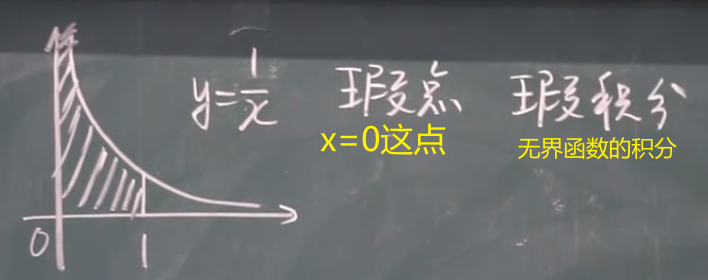 y=1/x 瑕点 瑕积分
x=0这点 无界函数的积分
0 1